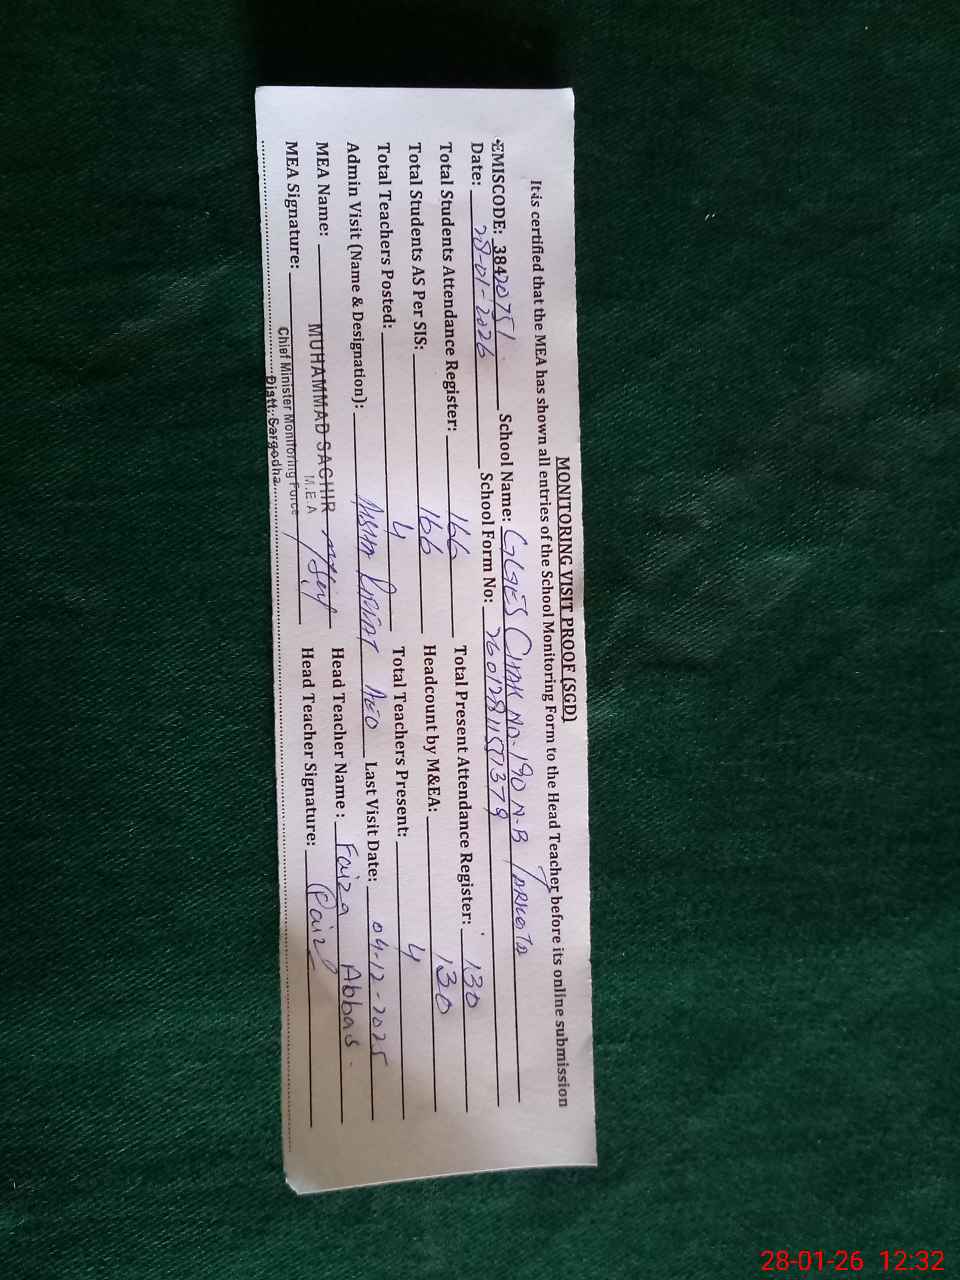 MONITORING VISIT PROOF (SGD)
It is certified that the MEA has shown all entries of the School Monitoring Form to the Head Teacher before its online submission
EMISCODE: 38420751 School Name: GGES Chak No-190 N-B
Date: 28-01-2026 School Form No:
Total Students Attendance Register: 166 Total Present Attendance Register: 130
Total Students AS Per SIS: 166 Headcount by M&EA: 130
Total Teachers Posted: 4 Total Teachers Present: 4
Admin Visit (Name & Designation): AEO Last Visit Date: 04-12-2025
MEA Name: MUHAMMAD SAGHIR Head Teacher Name: Faiza Abbas.
M.E.A
MEA Signature: Head Teacher Signature:
Chief Minister Monitoring Force
Distt: Sargodha
28-01-26 12:32